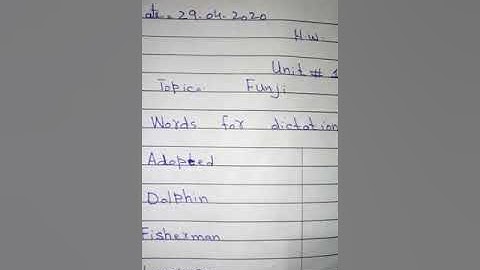 ate. 29.04.2020
H.W.
Unit # 1
Topic: Funji
Words for dictation
Adopted
Dolphin
Fisherman